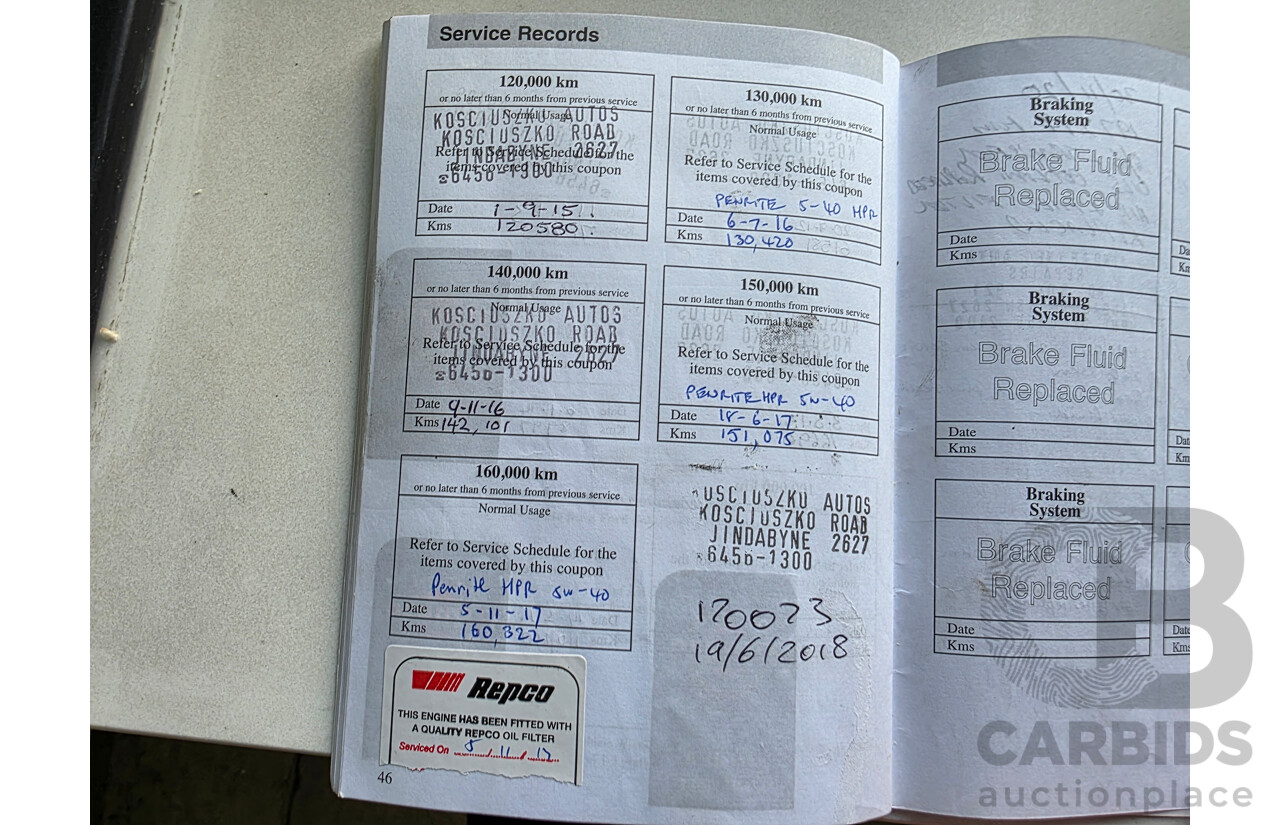 Service Records
120,000 km
or no later than 6 months from previous service
Normal Usage
KOSCIUSZKO AUTOS
KOSCIUSZKO ROAD
JINDABYNE 2627
6456-1300
Refer to Service Schedule for the
items covered by this coupon
Date 1-9-15.
Kms 120580.
130,000 km
or no later than 6 months from previous service
Normal Usage
Refer to Service Schedule for the
items covered by this coupon
PENRITE 5-40 HPR
Date 6-7-16
Kms 130,420
140,000 km
or no later than 6 months from previous service
Normal Usage
KOSCIUSZKO AUTOS
KOSCIUSZKO ROAD
JINDABYNE 2627
6456-1300
Refer to Service Schedule for the
items covered by this coupon
Date 9-11-16
Kms 142,101
150,000 km
or no later than 6 months from previous service
Normal Usage
Refer to Service Schedule for the
items covered by this coupon
PENRITE HPR 5W-40
Date 18-6-17
Kms 151,075
160,000 km
or no later than 6 months from previous service
Normal Usage
Refer to Service Schedule for the
items covered by this coupon
Penrite HPR 5W-40
Date 5-11-17
Kms 160,322
KOSCIUSZKO AUTOS
KOSCIUSZKO ROAD
JINDABYNE 2627
6456-1300
170023
19/6/2018
Repco
THIS ENGINE HAS BEEN FITTED WITH
A QUALITY REPCO OIL FILTER
Serviced On 5/11/17
46
Braking
System
Brake Fluid
Replaced
Date
Kms
Braking
System
Brake Fluid
Replaced
Date
Kms
Braking
System
Brake Fluid
Replaced
Date
Kms
Date
Kms
CARBIDS
auctionplace